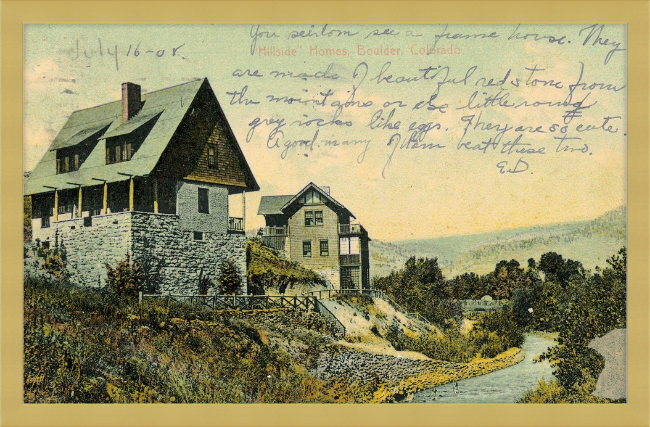 July 16-08.
You seldom see a frame house. They
"Hillside" Homes, Boulder, Colorado.
are made of beautiful red stone from
the mountains or else little round
grey rocks like eggs. They are so cute.
A good many of them beat these two.
E.D.